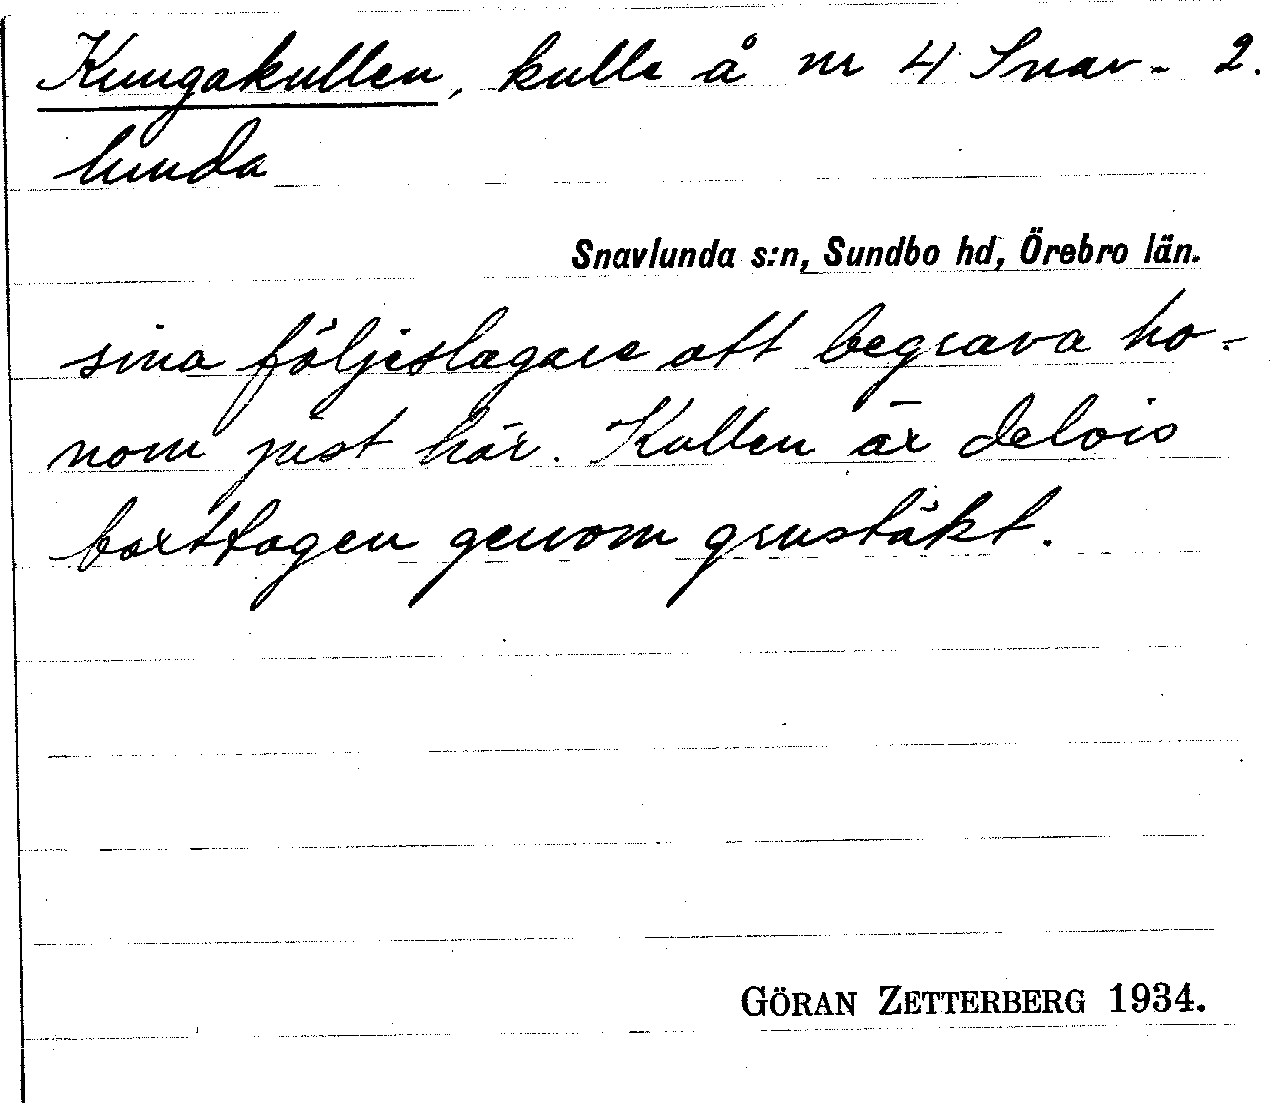 Kungakullen, kulle å nr 4 Snav- 2.
lunda
Snavlunda s:n, Sundbo hd, Örebro län.
sina följeslagare att begrava ho-
nom just här. Kullen är delvis
borttagen genom grustäkt.
GÖRAN ZETTERBERG 1934.